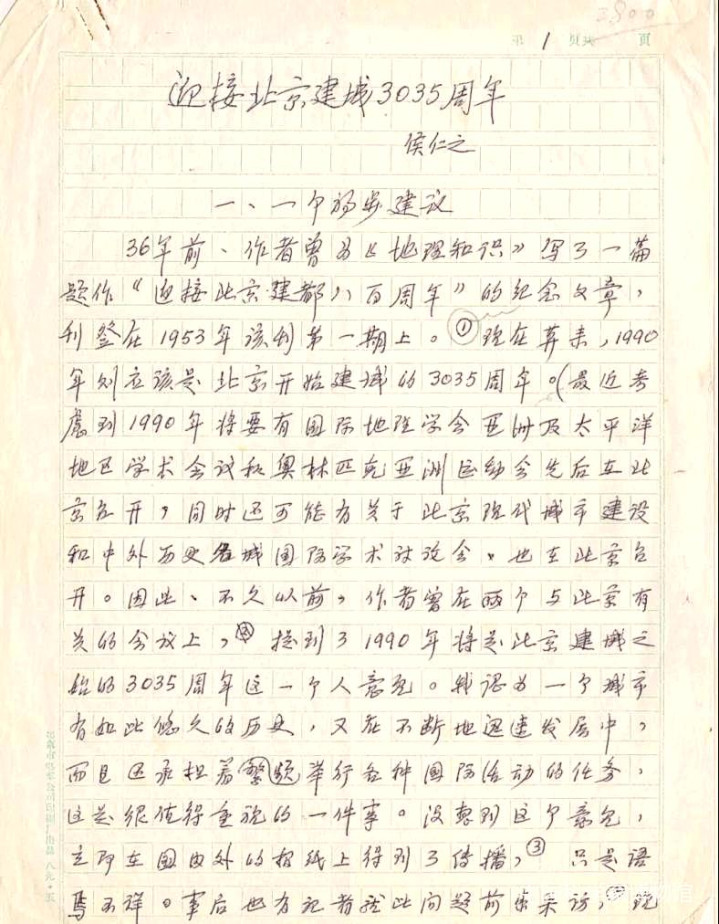 2800
第 1 页共 页
迎接北京建城3035周年
侯仁之
一、一个初步建议
36年前、作者曾为《地理知识》写了一篇
题作“迎接北京建都八百周年”的纪念文章，
刊登在1953年该刊第一期上。①现在算来，1990
年则应该是北京开始建城的3035周年。（最近考
虑到1990年将要有国际地理学会亚洲及太平洋
地区学术会议和奥林匹克亚洲运动会先后在北
京召开，同时还可能有关于北京现代城市建设
和中外历史名城国际学术讨论会，也在北京召
开。因此、不久以前，作者曾在两个与北京有
关的会议上，②提到了1990年将是北京建城之
始的3035周年这一个人意见。我认为一个城市
有如此悠久的历史，又在不断地迅速发展中，
而且还承担着繁题举行各种国际活动的任务，
这是很值得重视的一件事。没想到这个意见，
立即在国内外的报纸上得到了传播，③只是语
焉不详。事后也有记者就此问题前来采访，现